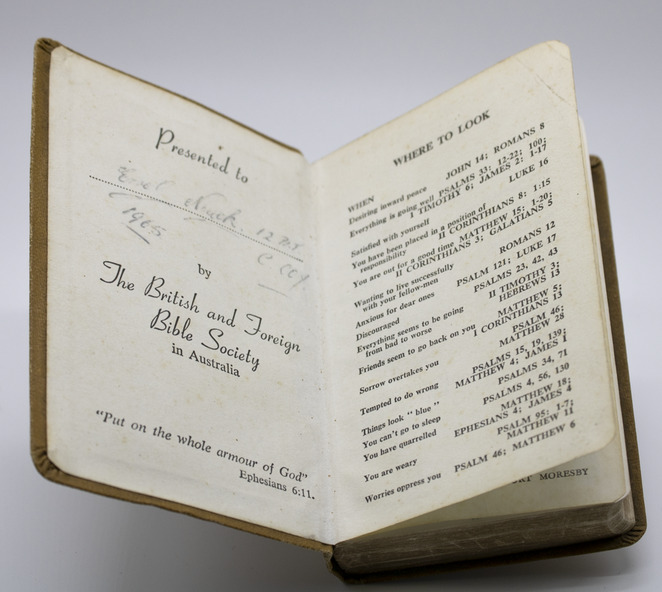 Presented to
1965
by
The British and Foreign
Bible Society
in Australia
"Put on the whole armour of God"
Ephesians 6:11.
WHERE TO LOOK
WHEN
Desiring inward peace JOHN 14; ROMANS 8
Everything is going well PSALMS 33: 12-22; 100;
I TIMOTHY 6; JAMES 2: 1-17
Satisfied with yourself LUKE 16
You have been placed in a position of
responsibility II CORINTHIANS 8: 1:15
You are out for a good time MATTHEW 15: 1-20;
II CORINTHIANS 3; GALATIANS 5
Wanting to live successfully
with your fellow-men ROMANS 12
Anxious for dear ones PSALM 121; LUKE 17
Discouraged PSALMS 23, 42, 43
Everything seems to be going II TIMOTHY 3;
from bad to worse HEBREWS 13
Friends seem to go back on you MATTHEW 5;
I CORINTHIANS 13
Sorrow overtakes you PSALM 46;
MATTHEW 28
Tempted to do wrong PSALMS 15, 19, 139;
MATTHEW 4; JAMES 1
Things look "blue" PSALMS 34, 71
You can't go to sleep PSALMS 4, 56, 130
You have quarrelled MATTHEW 18;
EPHESIANS 4; JAMES 4
You are weary PSALM 95: 1-7;
MATTHEW 11
Worries oppress you PSALM 46; MATTHEW 6
MORESBY